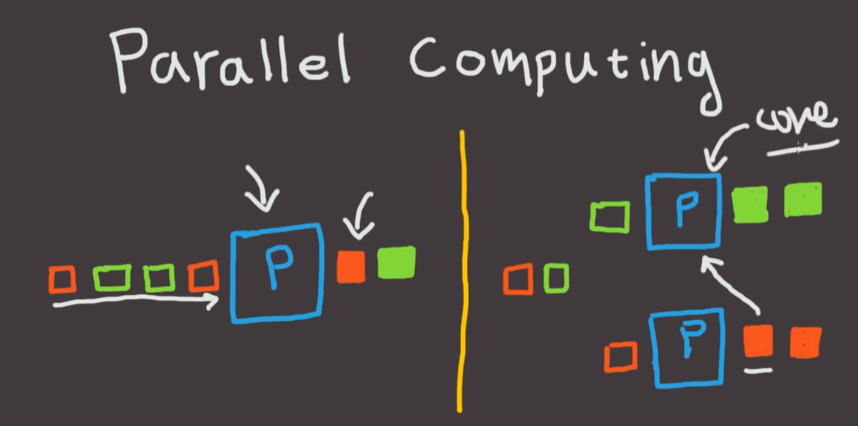 Parallel Computing
core
P
P
P